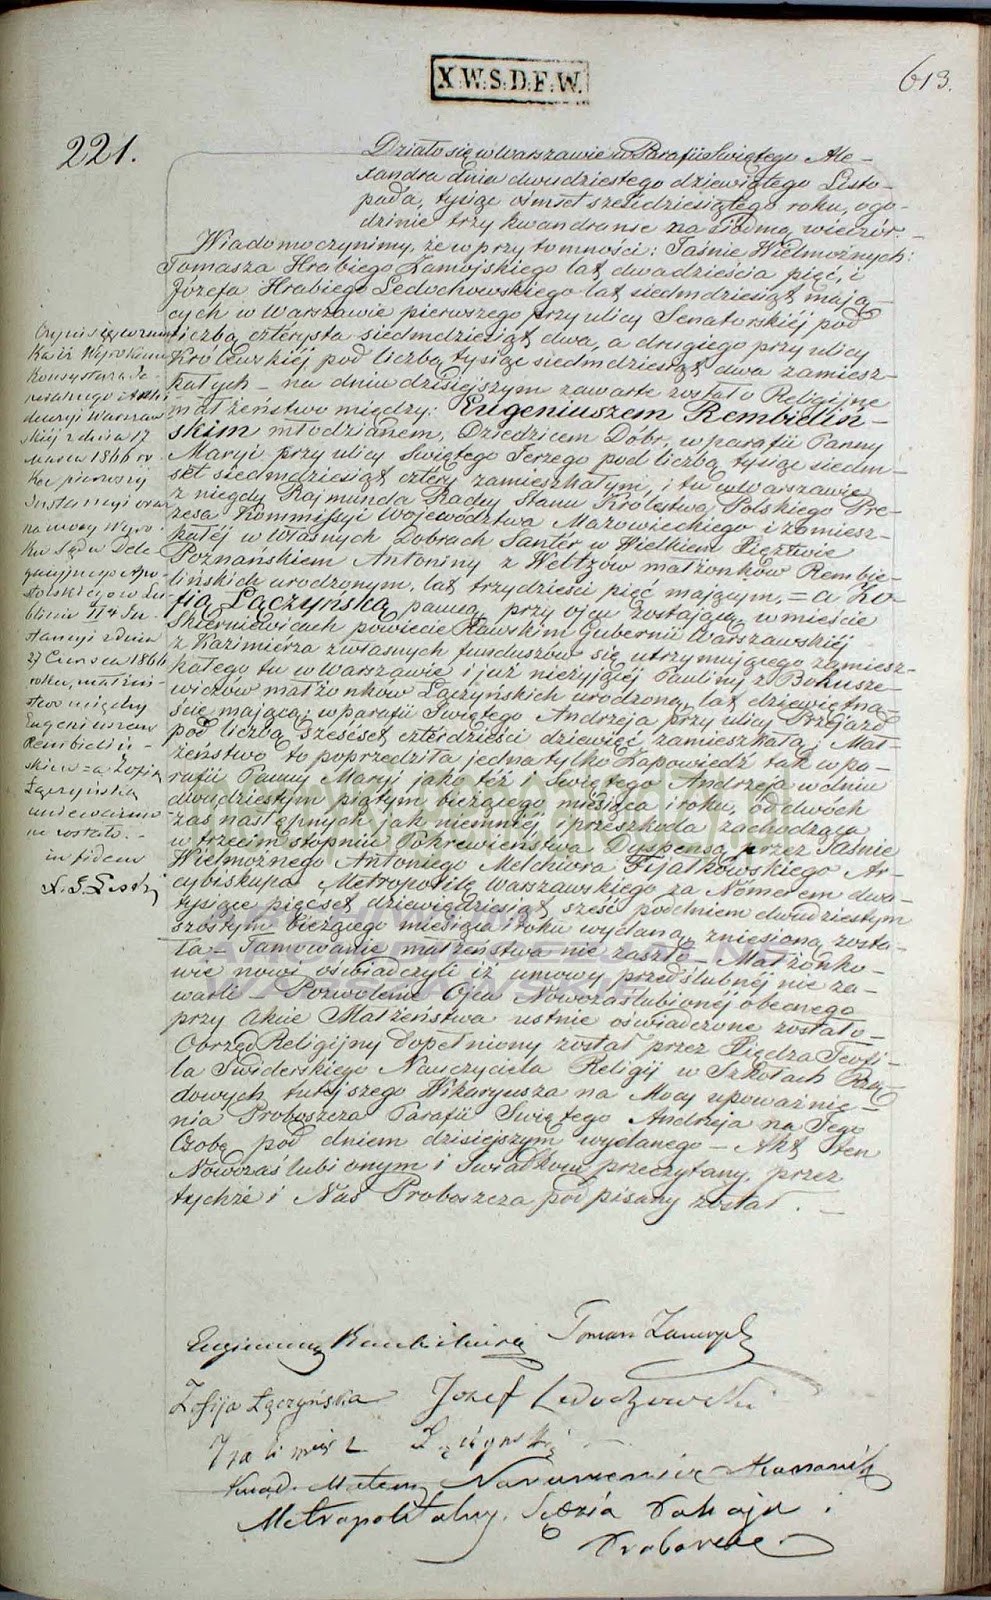 X.W.S.D.F.W.
613.
221.
Działo się w Warszawie w Parafii Świętego Ale-
xandra dnia dwudziestego dziewiątego Listo-
pada, tysiąc ośmset sześćdziesiątego roku, o go-
dzinie trzy kwandranse na siódmą wieczór. -
Wiadomo czynimy, że w przytomności: Jaśnie Wielmożnych:
Tomasza Hrabiego Zamojskiego lat dwadzieścia pięć, i
Józefa Hrabiego Ledochowskiego lat siedmdziesiąt mają-
cych w Warszawie pierwszego przy ulicy Senatorskiéj pod
liczbą czterysta siedmdziesiąt dwa, a drugiego przy ulicy
Królewskiéj pod liczbą tysiąc siedmdziesiąt dwa zamiesz-
kałych - na dniu dzisiejszym zawarte zostało Religijne
małżeństwo między: Eugeniuszem Rembieliń-
skim młodzianem, Dziedzicem Dóbr, w parafii Panny
Maryi przy ulicy Świętego Jerzego pod liczbą tysiąc siedm-
set siedmdziesiąt cztéry zamieszkałym, i tu w Warszawie
z niegdy Rajmunda Radcy Stanu Królestwa Polskiego Pre-
zesa Kommissyi Województwa Mazowieckiego i zamiesz-
kałéj w Własnych Dobrach Santér w Wielkiem Xięztwie
Poznańskiem Antoniny z Weltzów małżonków Rembie-
lińskich urodzonym, lat trzydzieści pięć mającym, = a Zo-
fią Łączyńską panną przy ojcu zostającą w mieście
Skierniewicach powiecie Rawskim Gubernii Warszawskiéj
z Kazimiérza z własnych funduszów się utrzymującego zamiesz-
kałego tu w Warszawie i już nieżyjącéj Pauliny z Bohusze-
wiczów małżonków Łączyńskich urodzoną, lat dziewiętna-
ście mającą; w parafii Świętego Andrzeja przy ulicy Przejazd
pod liczbą sześćset czterdzieści dziewięć zamieszkałą; Mał-
żeństwo to poprzedziła jedna tylko Zapowiedź tak w pa-
rafii Panny Maryi jako téż i Świętego Andrzeja w dniu
dwudziestym piątym bieżącego miesiąca i roku, od dwóch
zaś następnych jak niemniéj i przeszkoda zachodząca
w trzecim stopniu Pokrewieństwa Dyspensą przez Jaśnie
Wielmożnego Antoniego Melchiora Fijałkowskiego Ar-
cybiskupa Metropolitę Warszawskiego za Numerem dwa-
tysiące pięćset dziewięćdziesiąt sześć pod dniem dwudziestym
szóstym bieżącego miesiąca i roku wydaną, zniesioną zosta-
ła - Tamowanie małżeństwa nie zaszło - Małżonko-
wie nowi oświadczyli iż umowy przedślubnéj nie za-
warli - Pozwolenie Ojca Nowozaślubionéj obecnego
przy Akcie Małżeństwa ustnie oświadczone zostało -
Obrzęd Religijny dopełniony został przez Xiędza Teofi-
la Świderskiego Nauczyciela Religii w Szkołach Rzą-
dowych tutéjszego Wikaryusza na Mocy upoważnie-
nia Proboszcza Parafii Świętego Andrzeja na Jego
Osobę pod dniem dzisiejszym wydanego - Akt ten
Nowozaślubionym i Świadkom przeczytany, przez
tychże i Nas Proboszcza podpisany został. -
Czyni się wzmian-
ka iż Wyrokiem
Konsystorza Je-
neralnego Archi-
dyecezyi Warszaw-
skiéj z dnia 17
Marca 1866 ro-
ku pierwszéj
Instancyi oraz
na mocy Wyro-
ku Sądu Dele-
gacyjnego Apo-
stolskiego w Lu-
blinie IIéj In-
stancyi z dnia
27 Czerwca 1866
roku, małżeń-
stwo między
Eugeniuszem
Rembieliń-
skim = a Zofią
Łączyńską
unieważnio-
ne zostało. -
in fidem
Eugeniusz Rembieliński Tomasz Zamoyski
Zofija Łączyńska Józef Ledochowski
Kazimierz Łączyński
Kanonik
Metropolitalny, Sędzia Pokoju i
Proboszcz
ARCHIWUM ARCHIDIECEZJALNE
WARSZAWSKIE